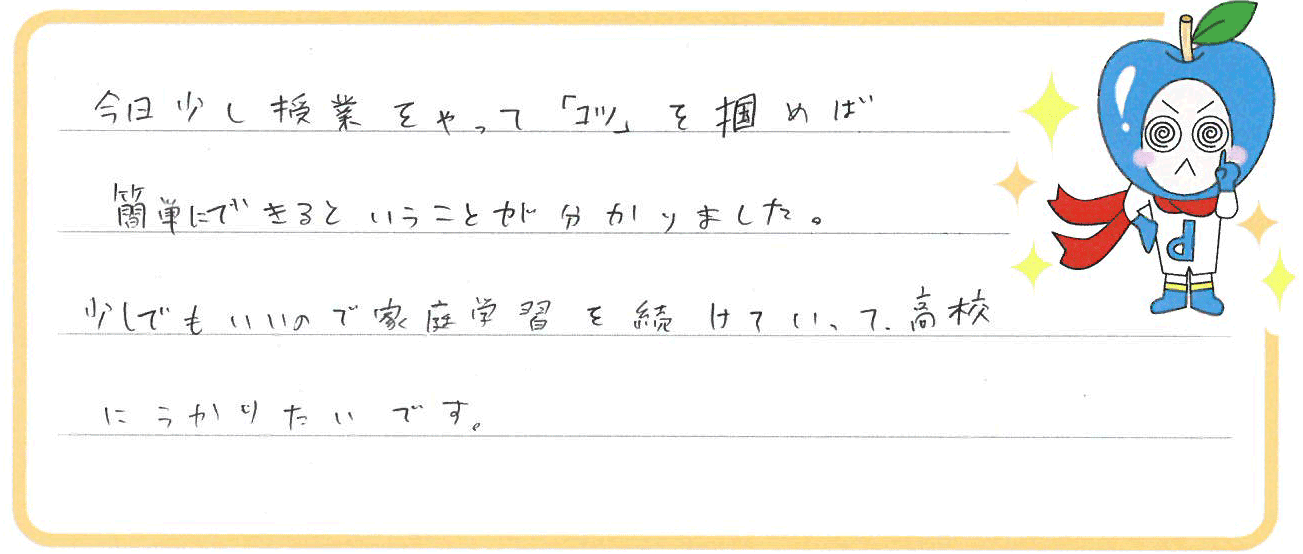 今日少し授業をやって「コツ」を掴めば
簡単にできるということが分かりました。
少しでもいいので家庭学習を続けていって、高校
にうかりたいです。
d